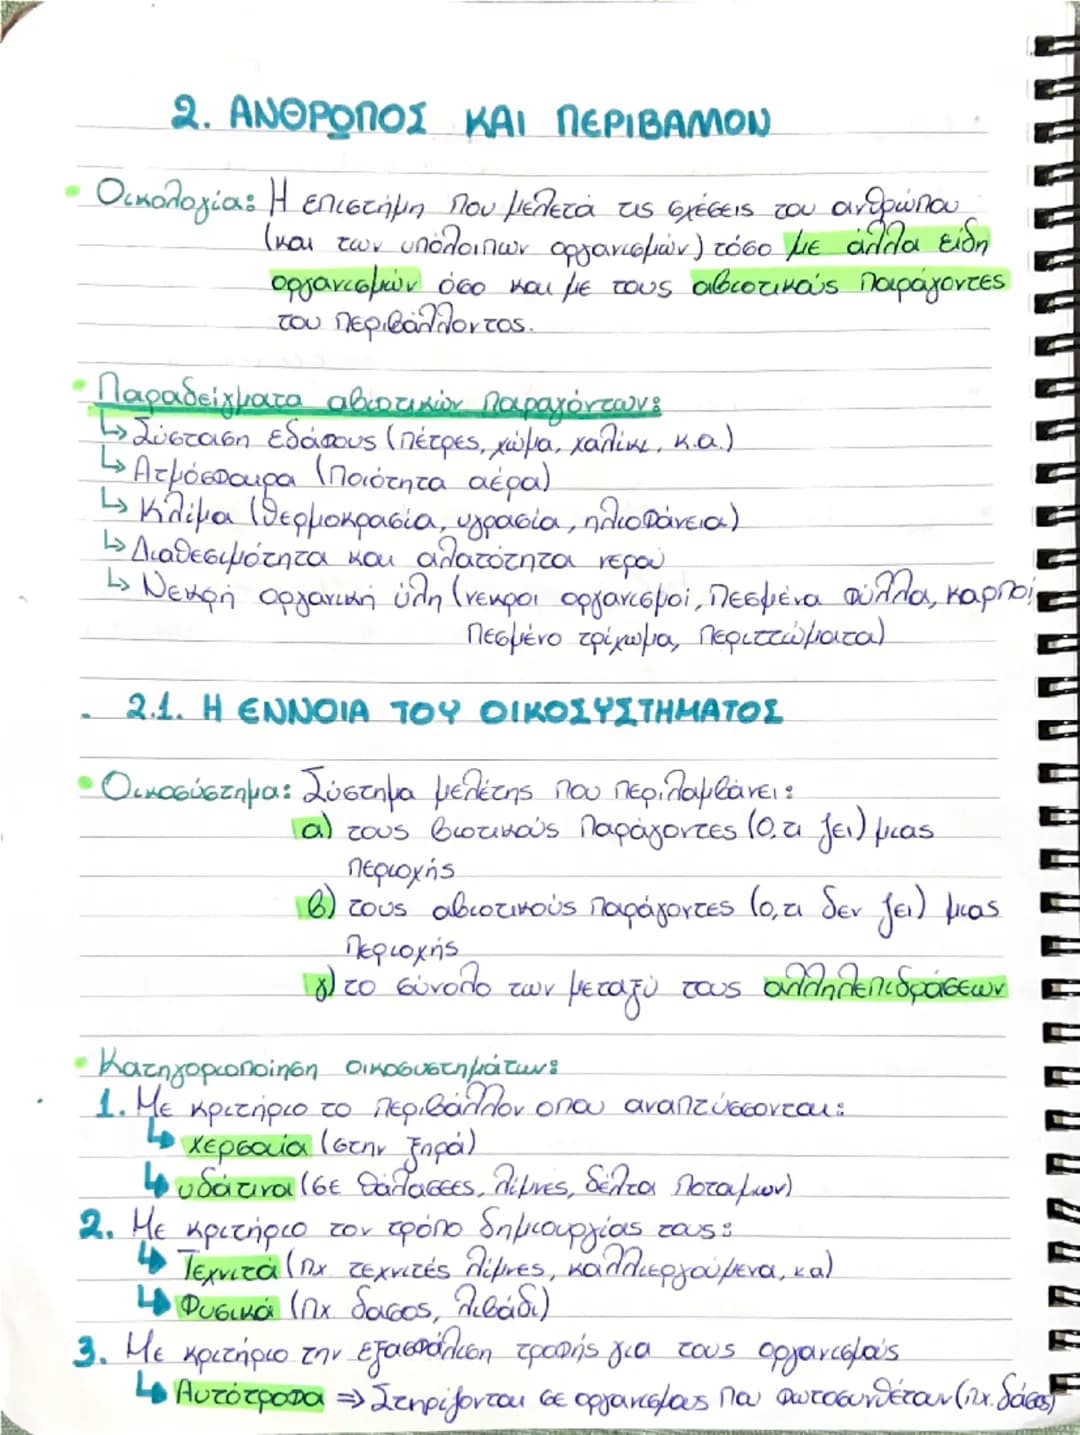 2. ΑΝΘΡΩΠΟΣ ΚΑΙ ΠΕΡΙΒΑΛΛΟΝ
• Οικολογία: Η επιστήμη που μελετά τις σχέσεις του ανθρώπου
(και των υπόλοιπων οργανισμών) τόσο με άλλα είδη
οργανισμών όσο και με τους αβιοτικούς παράγοντες
του περιβάλλοντος.
• Παραδείγματα αβιοτικών παραγόντων:
↳ Σύσταση εδάφους (πέτρες, χώμα, χαλίκι, κ.α.)
↳ Ατμόσφαιρα (ποιότητα αέρα)
↳ Κλίμα (θερμοκρασία, υγρασία, ηλιοφάνεια)
↳ Διαθεσιμότητα και αλατότητα νερού
↳ Νεκρή οργανική ύλη (νεκροι οργανισμοί, πεσμένα φύλλα, καρποί
πεσμένο τρίχωμα, περιττώματα)
- 2.1. Η ΕΝΝΟΙΑ ΤΟΥ ΟΙΚΟΣΥΣΤΗΜΑΤΟΣ
• Οικοσύστημα: Σύστημα μελέτης που περιλαμβάνει:
α) τους βιοτικούς παράγοντες (ο,τι ζει) μιας
περιοχής
β) τους αβιοτικούς παράγοντες (ο,τι δεν ζει) μιας
περιοχής
γ) το σύνολο των μεταξύ τους αλληλεπιδράσεων
• Κατηγοριοποίηση οικοσυστημάτων:
1. Με κριτήριο το περιβάλλον οπου αναπτύσσονται:
↳ χερσαία (στην ξηρά)
↳ υδάτινα (σε θάλασσες, λίμνες, δέλτα ποταμων)
2. Με κριτήριο τον τρόπο δημιουργίας τους:
↳ Τεχνιτά (πχ τεχνιτές λίμνες, καλλιεργούμενα, κα)
↳ Φυσικά (πχ δασος, λιβάδι)
3. Με κριτήριο την εξασφάλιση τροφής για τους οργανισμούς
↳ Αυτότροφα ⇒ Στηρίζονται σε οργανισμους που φωτοσυνθέτουν (πχ. δάσος)